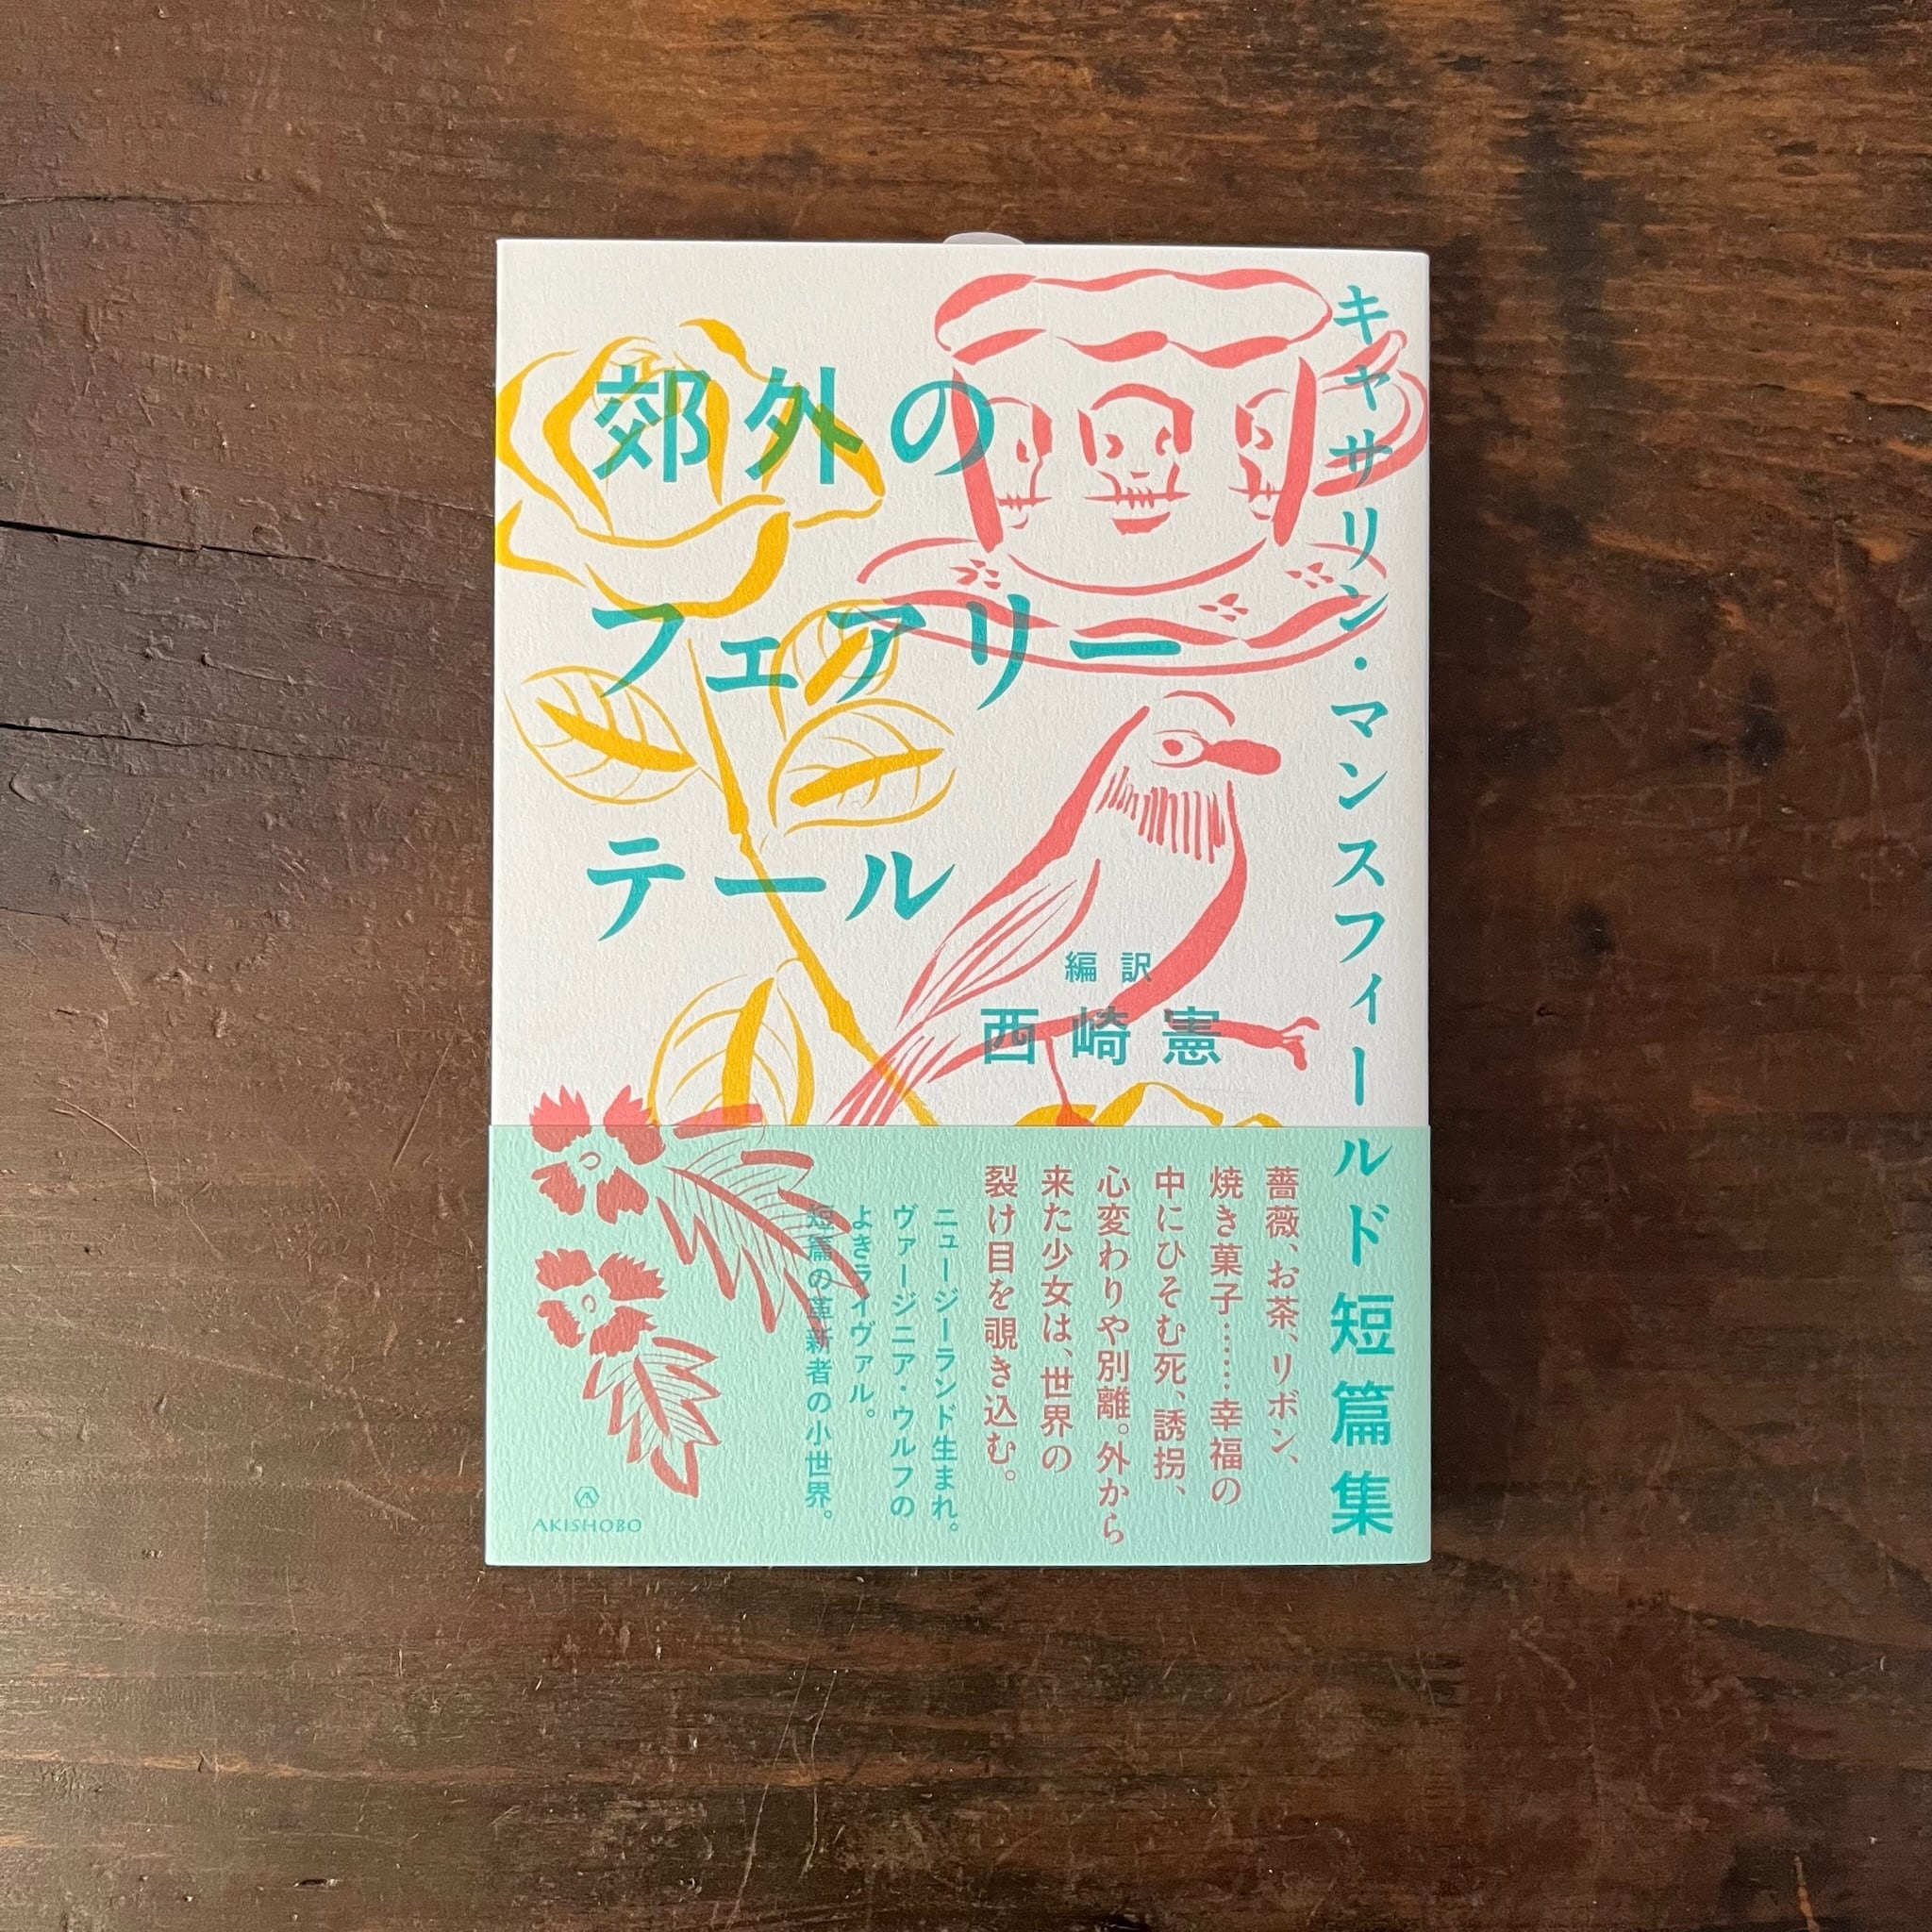 郊外の
フェアリー
テール
キャサリン・マンスフィールド短篇集
編訳
西崎憲
薔薇、お茶、リボン、
焼き菓子……幸福の
中にひそむ死、誘拐、
心変わりや別離。外から
来た少女は、世界の
裂け目を覗き込む。
ニュージーランド生まれ。
ヴァージニア・ウルフの
よきライヴァル。
短篇の革新者の小世界。
AKISHOBO